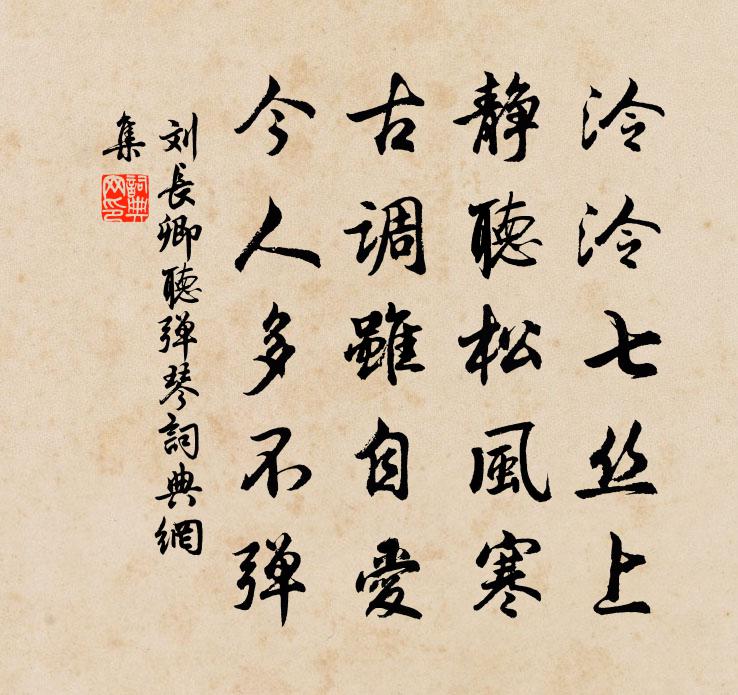 泠泠七丝上
静聽松風寒
古调雖自愛
今人多不弹
刘長卿聽弹琴詞典網
集
詞典
网印